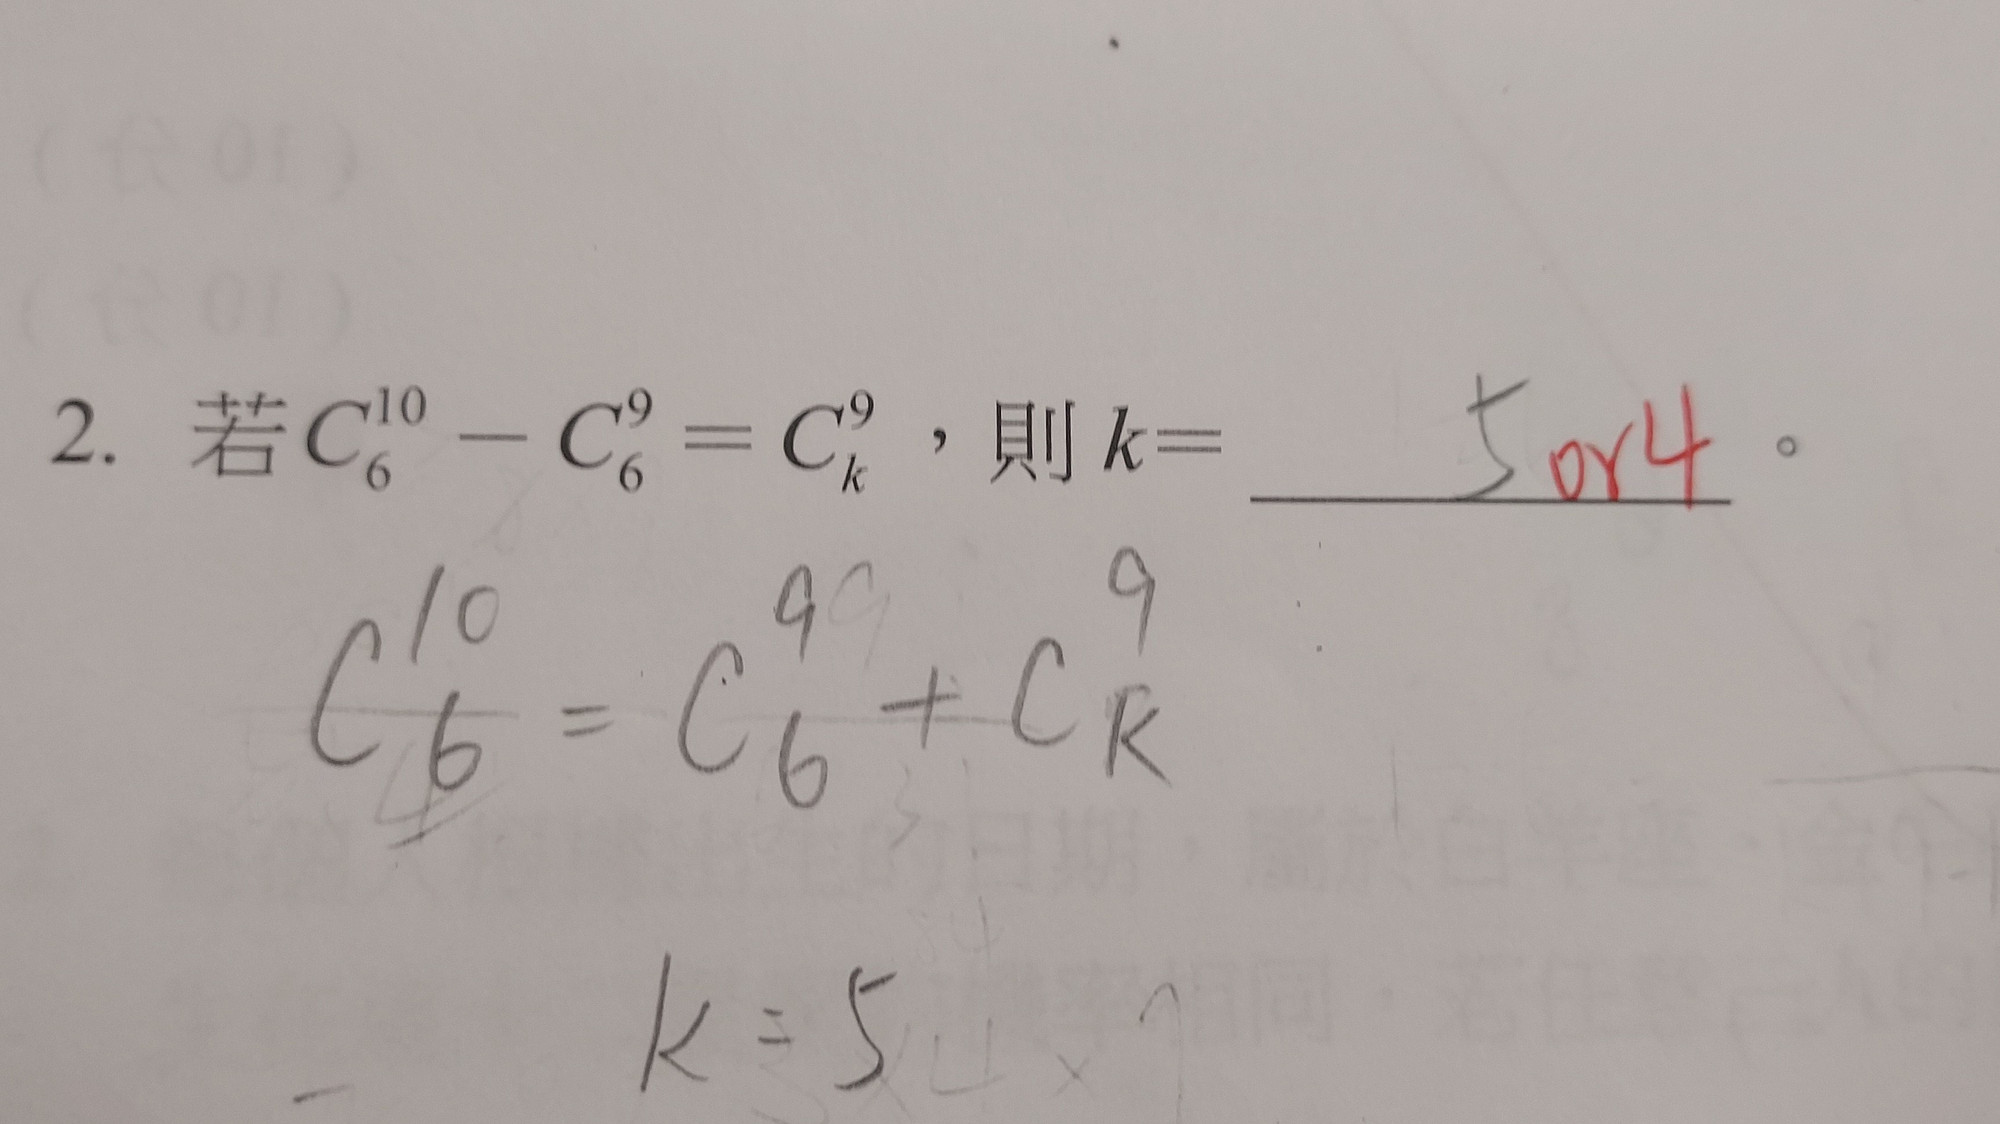 2. 若 C₆¹⁰ − C₆⁹ = Cₖ⁹，則 k= 5 or 4 。
C₆¹⁰ = C₆⁹ + Cₖ⁹
k = 5